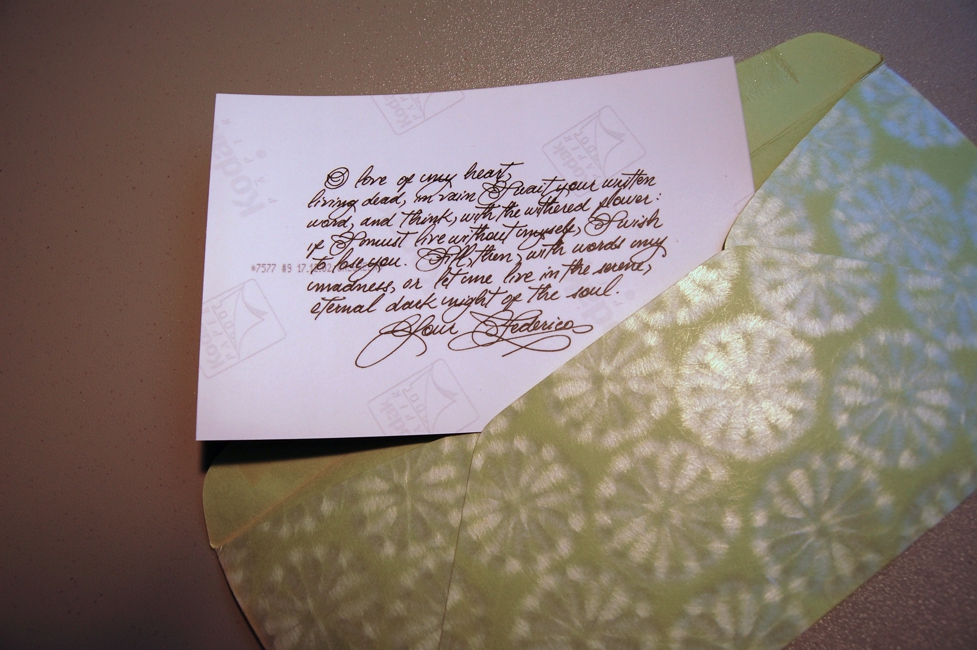 O love of my heart,
living dead, in vain I wait your written
word, and think, with the withered flower:
if I must live without myself, I wish
to lose you. Fill, then, with words my
madness, or let me live in the serene,
eternal dark night of the soul.
Your Federico
*7577 #9 17.12.02
Kodak
Kodak
Kodak
Kodak
Kodak